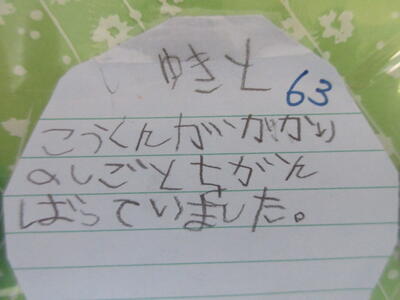 ゆきと
63
こうくんがいがかり
のしごとをがん
ばっていました。